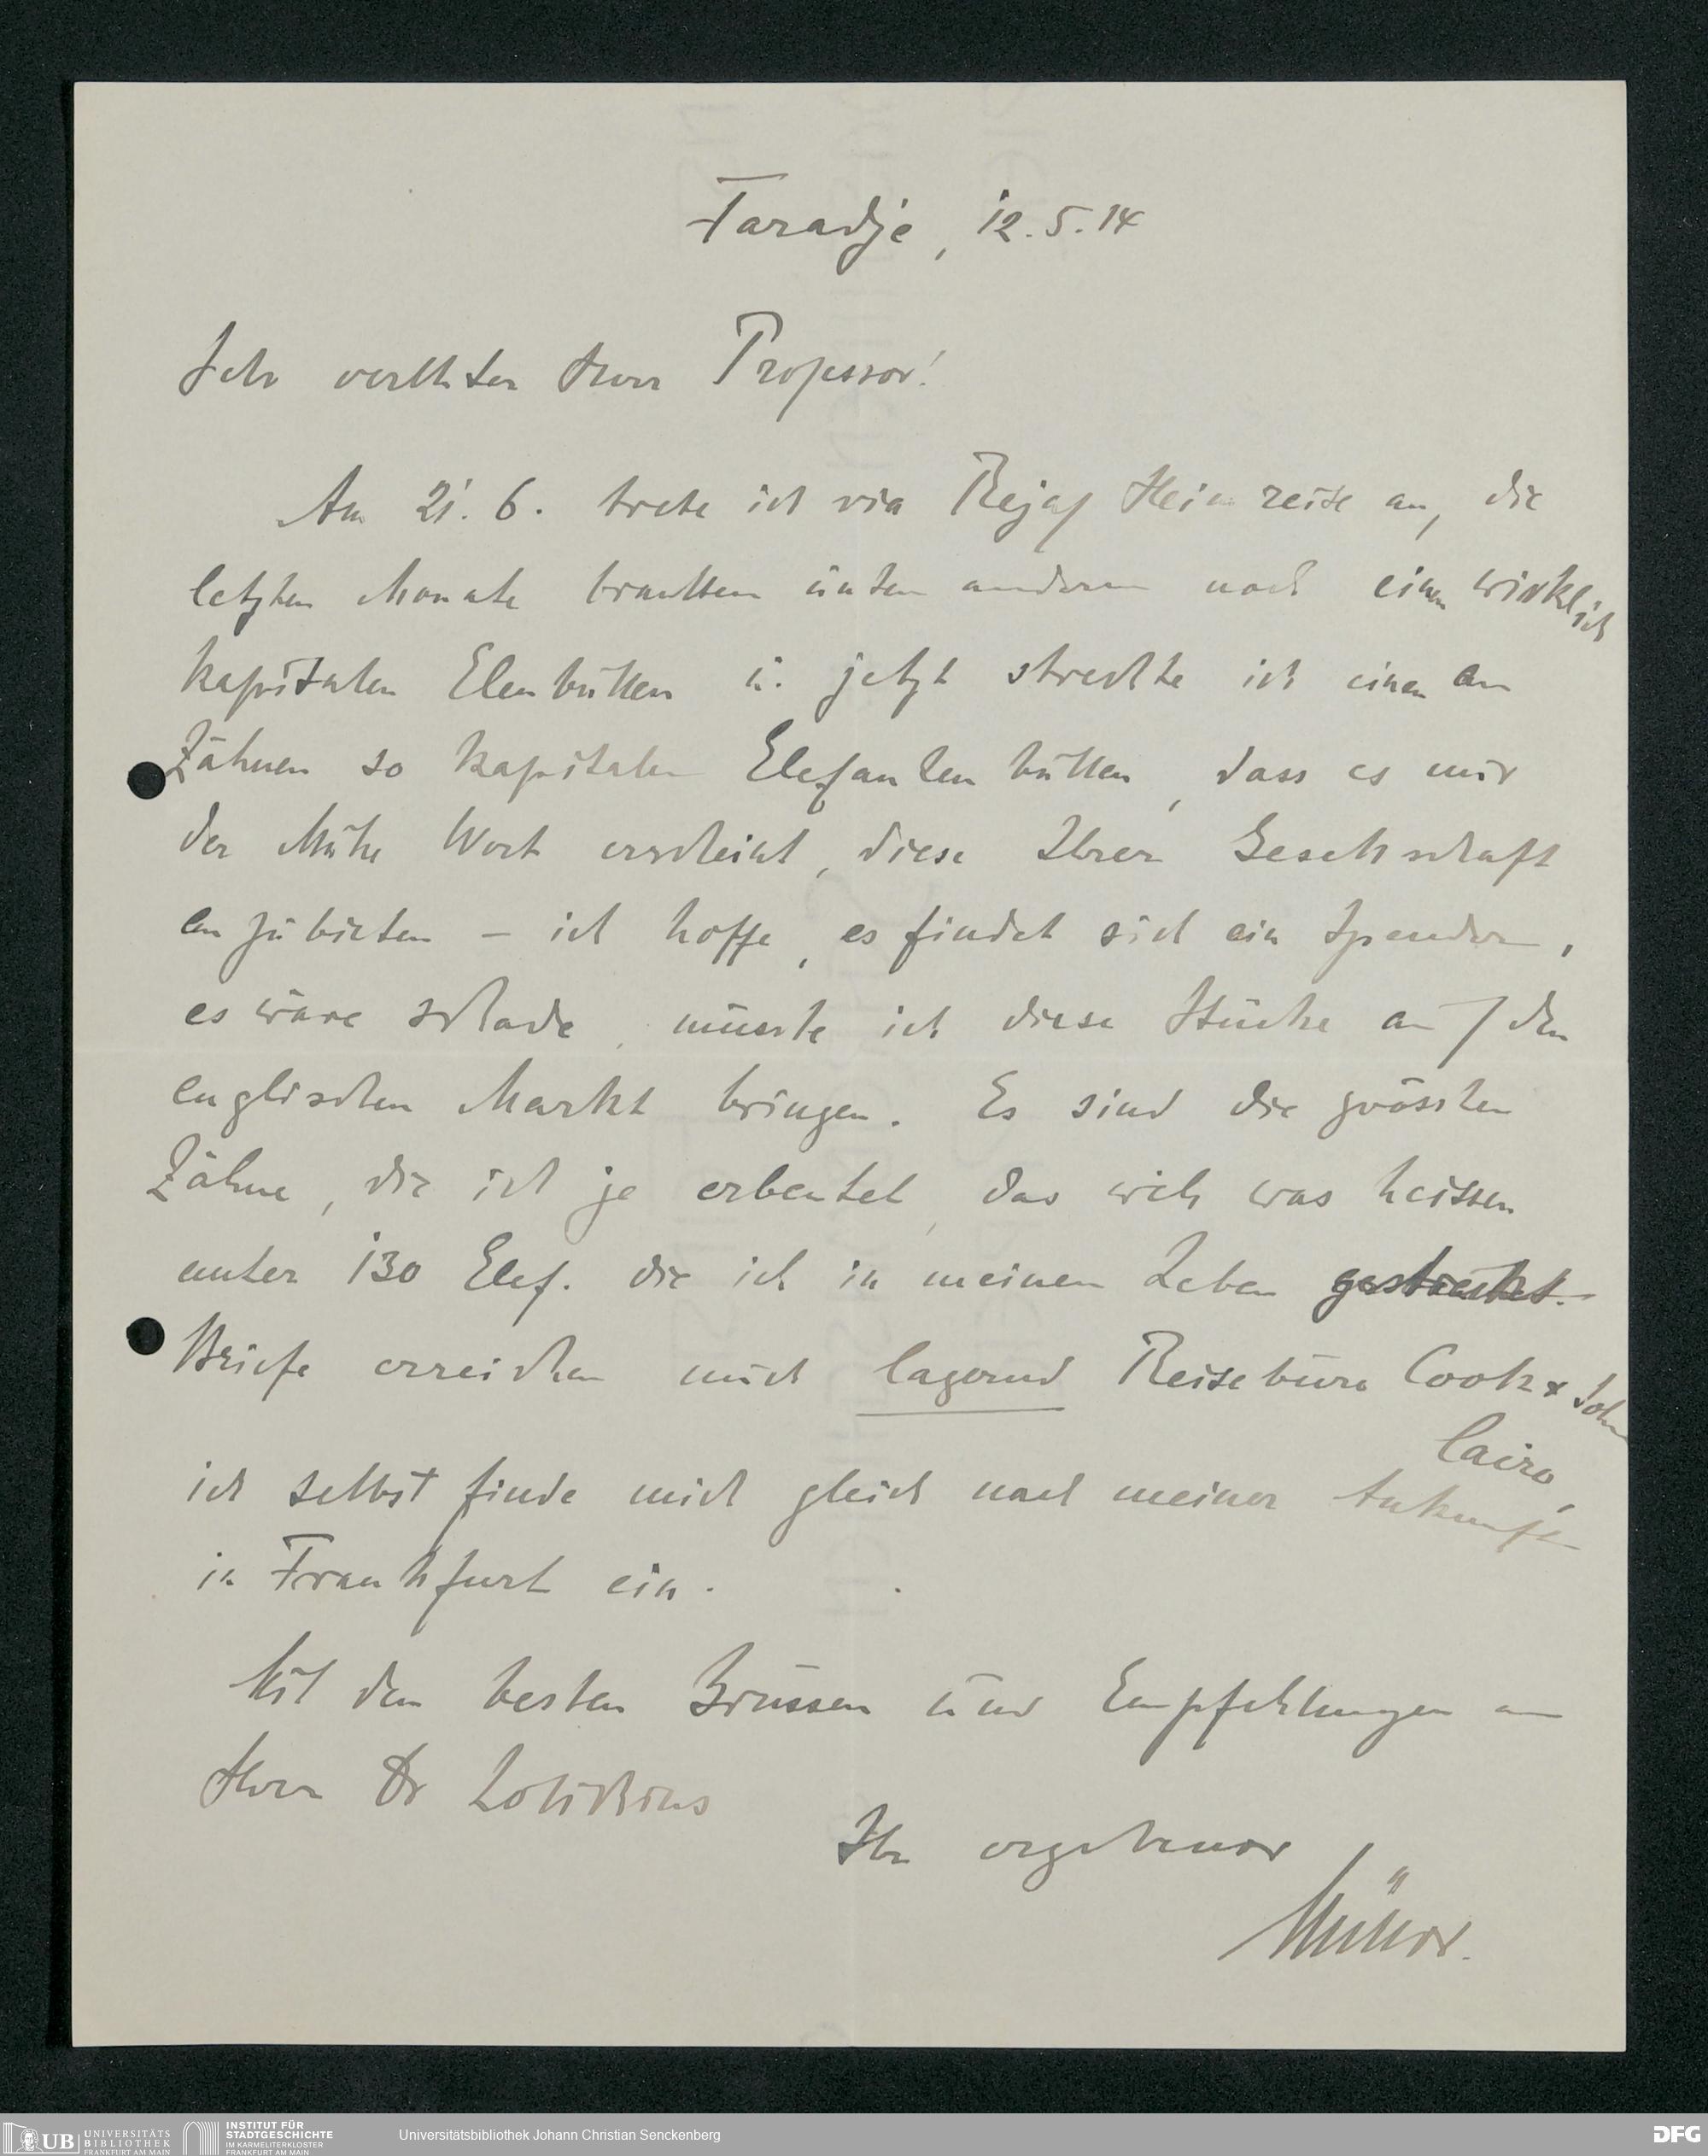 Faradje, 12.5.14
Sehr verehrter Herr Professor!
Am 21.6. trete ich via Rejaf Heimreise an, die
letzten Monate brachten unter anderem noch einen wirklich
kapitalen Elenbullen u. jetzt streckte ich einen an
Zähnen so kapitalen Elefantenbullen, dass es mir
der Mühe Wert erscheint, diese Ihrer Gesellschaft
anzubieten – ich hoffe, es findet sich ein Spender,
es wäre schade, müsste ich diese Stücke auf den
englischen Markt bringen. Es sind die grössten
Zähne, die ich je erbeutet, das will was heissen
unter 130 Elef. die ich in meinem Leben gestreckt.
Briefe erreichen mich lagernd Reisebüro Cook & Sohn
Cairo,
ich selbst finde mich gleich nach meiner Ankunft
in Frankfurt ein.
Mit den besten Grüssen und Empfehlungen an
Herrn Dr Lotichius
Ihr ergebener
Müller.
UB UNIVERSITÄTS
BIBLIOTHEK
FRANKFURT AM MAIN
INSTITUT FÜR
STADTGESCHICHTE
IM KARMELITERKLOSTER
FRANKFURT AM MAIN
Universitätsbibliothek Johann Christian Senckenberg
DFG